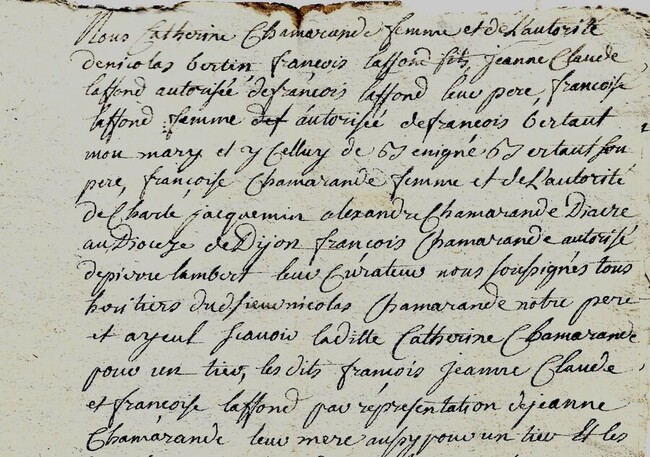 Nous Catherine Chamarande femme et de L'autorité
de nicolas bertin, françois laffond fils, jeanne Claude
laffond autorisée de françois laffond leur pere, françoise
laffond femme et autorisée de françois bertaut
mon mary et y Celluy de Bénigne Bertaut son
pere, françoise Chamarande femme et de L'autorité
de Charle jacquemin alexandre Chamarande Diacre
au Dioceze de Dijon françois Chamarande autorisé
de pierre lambert leur Curateur nous soussignés tous
heritiers dud sieur nicolas Chamarande notre pere
et ayeul scavoir laditte Catherine Chamarande
pour un tier, les dits françois jeanne Claude
et françoise laffond par représentation de jeanne
Chamarande leur mere aussy pour un tier Et les